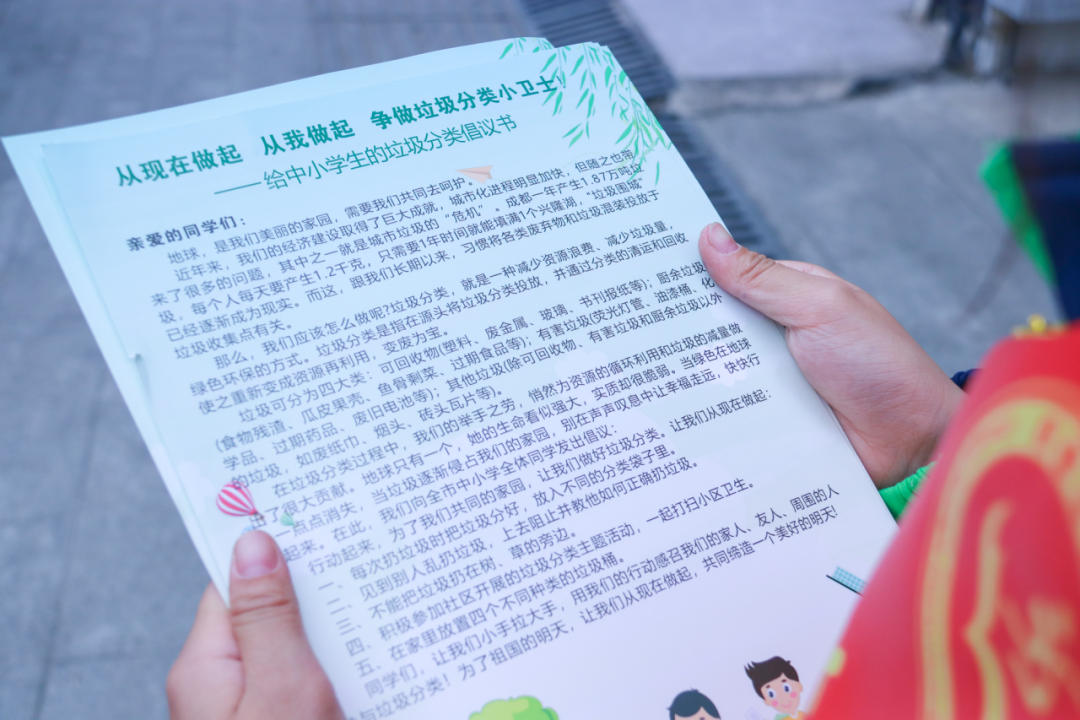 从现在做起 从我做起 争做垃圾分类小卫士
——给中小学生的垃圾分类倡议书
亲爱的同学们：
地球，是我们美丽的家园，需要我们共同去呵护。
近年来，我们的经济建设取得了巨大成就，城市化进程明显加快，但随之也带
来了很多的问题，其中之一就是城市垃圾的“危机”。成都一年产生1.87万吨垃
圾，每个人每天要产生1.2千克，只需要1年时间就能填满1个兴隆湖，“垃圾围城”
已经逐渐成为现实。而这，跟我们长期以来，习惯将各类废弃物和垃圾混装投放于
垃圾收集点有关。
那么，我们应该怎么做呢?垃圾分类，就是一种减少资源浪费、减少垃圾量，
绿色环保的方式。垃圾分类是指在源头将垃圾分类投放，并通过分类的清运和回收
使之重新变成资源再利用，变废为宝。
垃圾可分为四大类：可回收物(塑料、废金属、玻璃、书刊报纸等)；厨余垃圾
(食物残渣、瓜皮果壳、鱼骨剩菜、过期食品等)；有害垃圾(荧光灯管、油漆桶、化
学品、过期药品、废旧电池等)；其他垃圾(除可回收物、有害垃圾和厨余垃圾以外
的垃圾，如废纸巾、烟头、砖头瓦片等)。
在垃圾分类过程中，我们的举手之劳，悄然为资源的循环利用和垃圾的减量做
出了很大贡献。地球只有一个，她的生命看似强大，实质却很脆弱。当绿色在地球
一点点消失，当垃圾逐渐侵占我们的家园，别在声声叹息中让幸福走远，快快行
起来，在此，我们向全市中小学全体同学发出倡议：
行动起来，为了我们共同的家园，让我们做好垃圾分类。让我们从现在做起：
一、每次扔垃圾时把垃圾分好，放入不同的分类袋子里。
二、见到别人乱扔垃圾，上去阻止并教他如何正确扔垃圾。
三、不能把垃圾扔在树、草的旁边。
四、积极参加社区开展的垃圾分类主题活动，一起打扫小区卫生。
五、在家里放置四个不同种类的垃圾桶。
同学们，让我们小手拉大手，用我们的行动感召我们的家人、友人、周围的人
与垃圾分类！为了祖国的明天，让我们从现在做起，共同缔造一个美好的明天!